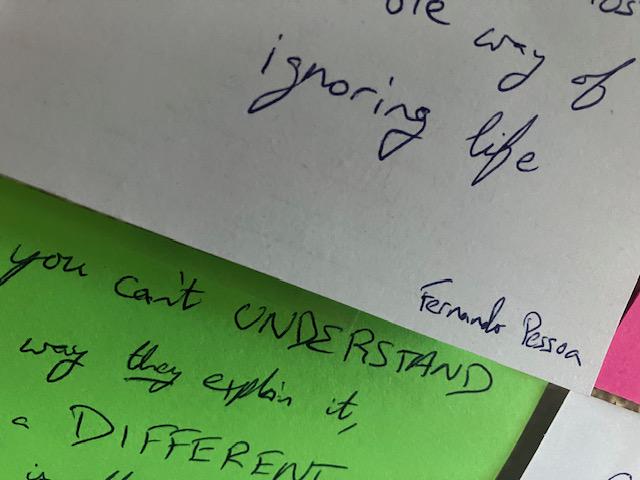 way of
ignoring life
Fernando Pessoa
you can't UNDERSTAND
way they explain it,
a DIFFERENT